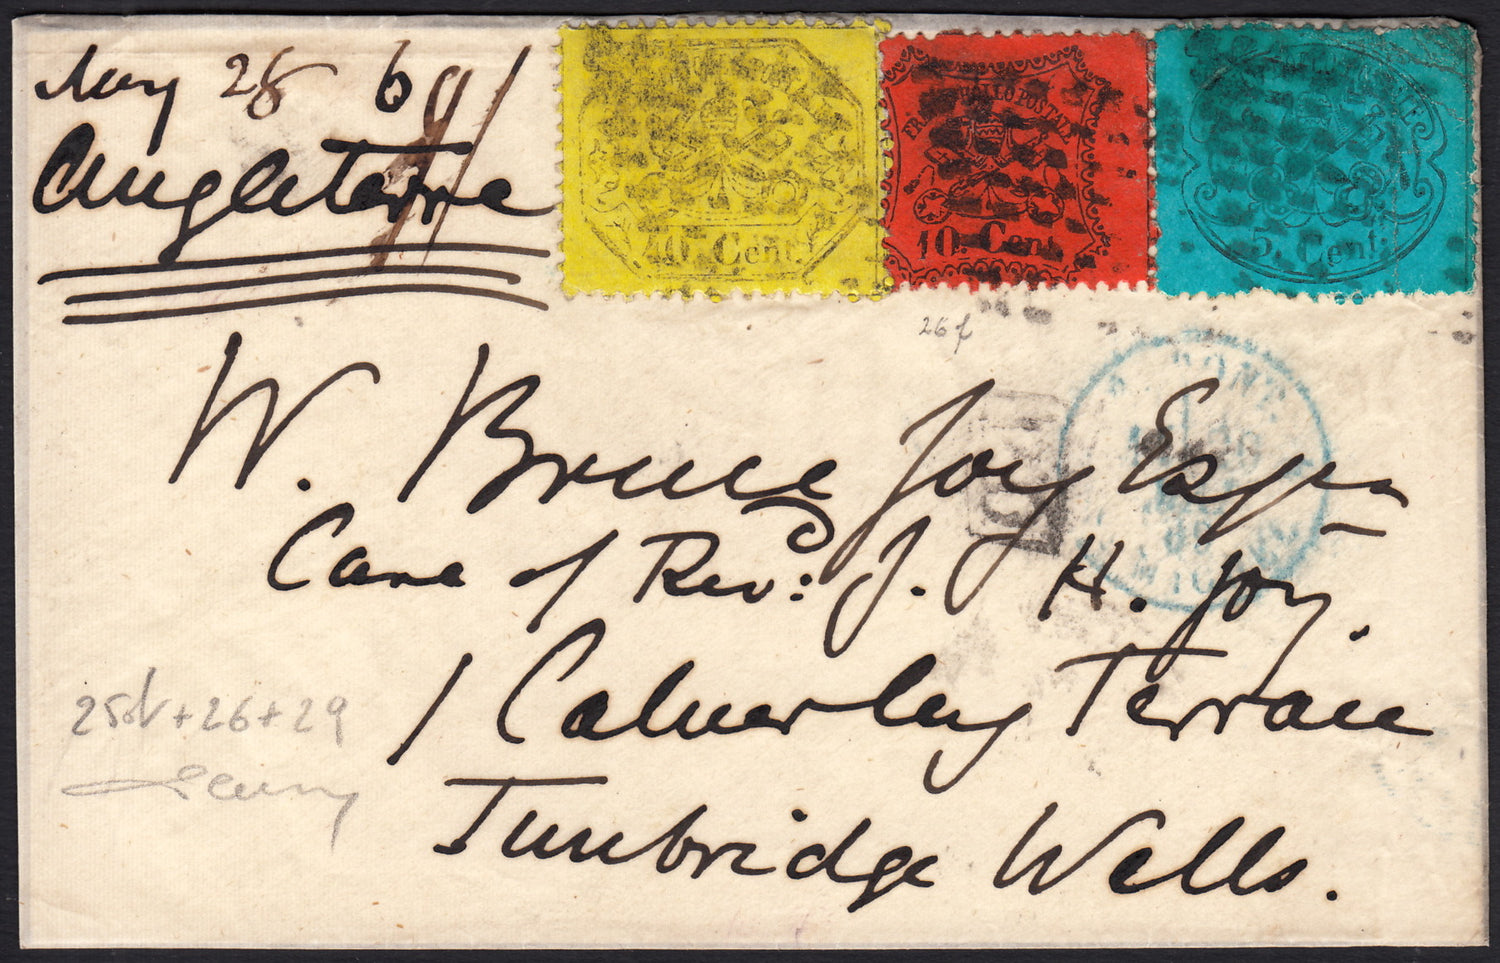 May 28 69
Angleterre
FRANCO BOLLO POSTALE
40. Cent.
10. Cent.
5. Cent.
26 f
W. Bruce Joy Esqre
Care of Revd: J. H. Joy.
1 Calverley Terrace
Tunbridge Wells.
+ 26 + 29